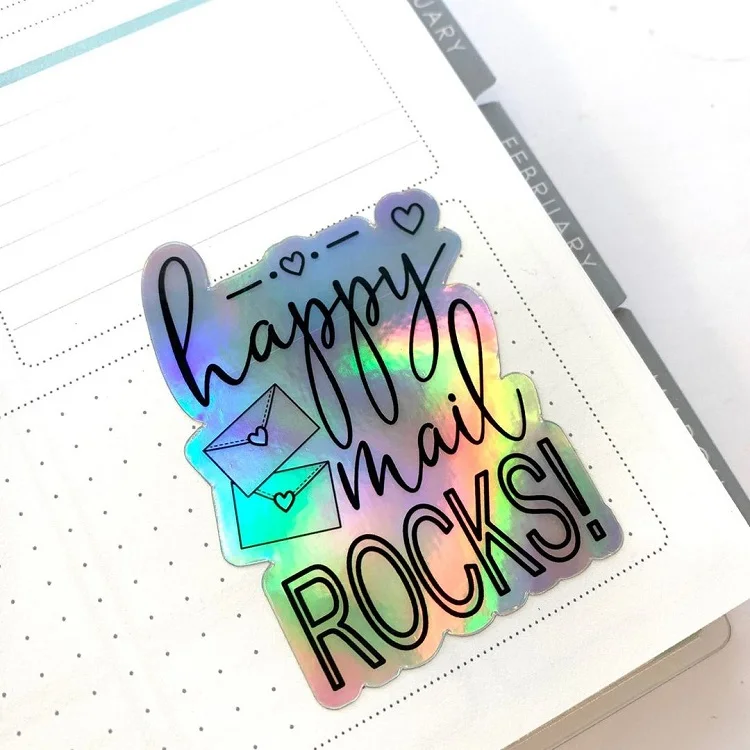 happy
mail
ROCKS!
UARY
FEBRUARY
MARCH